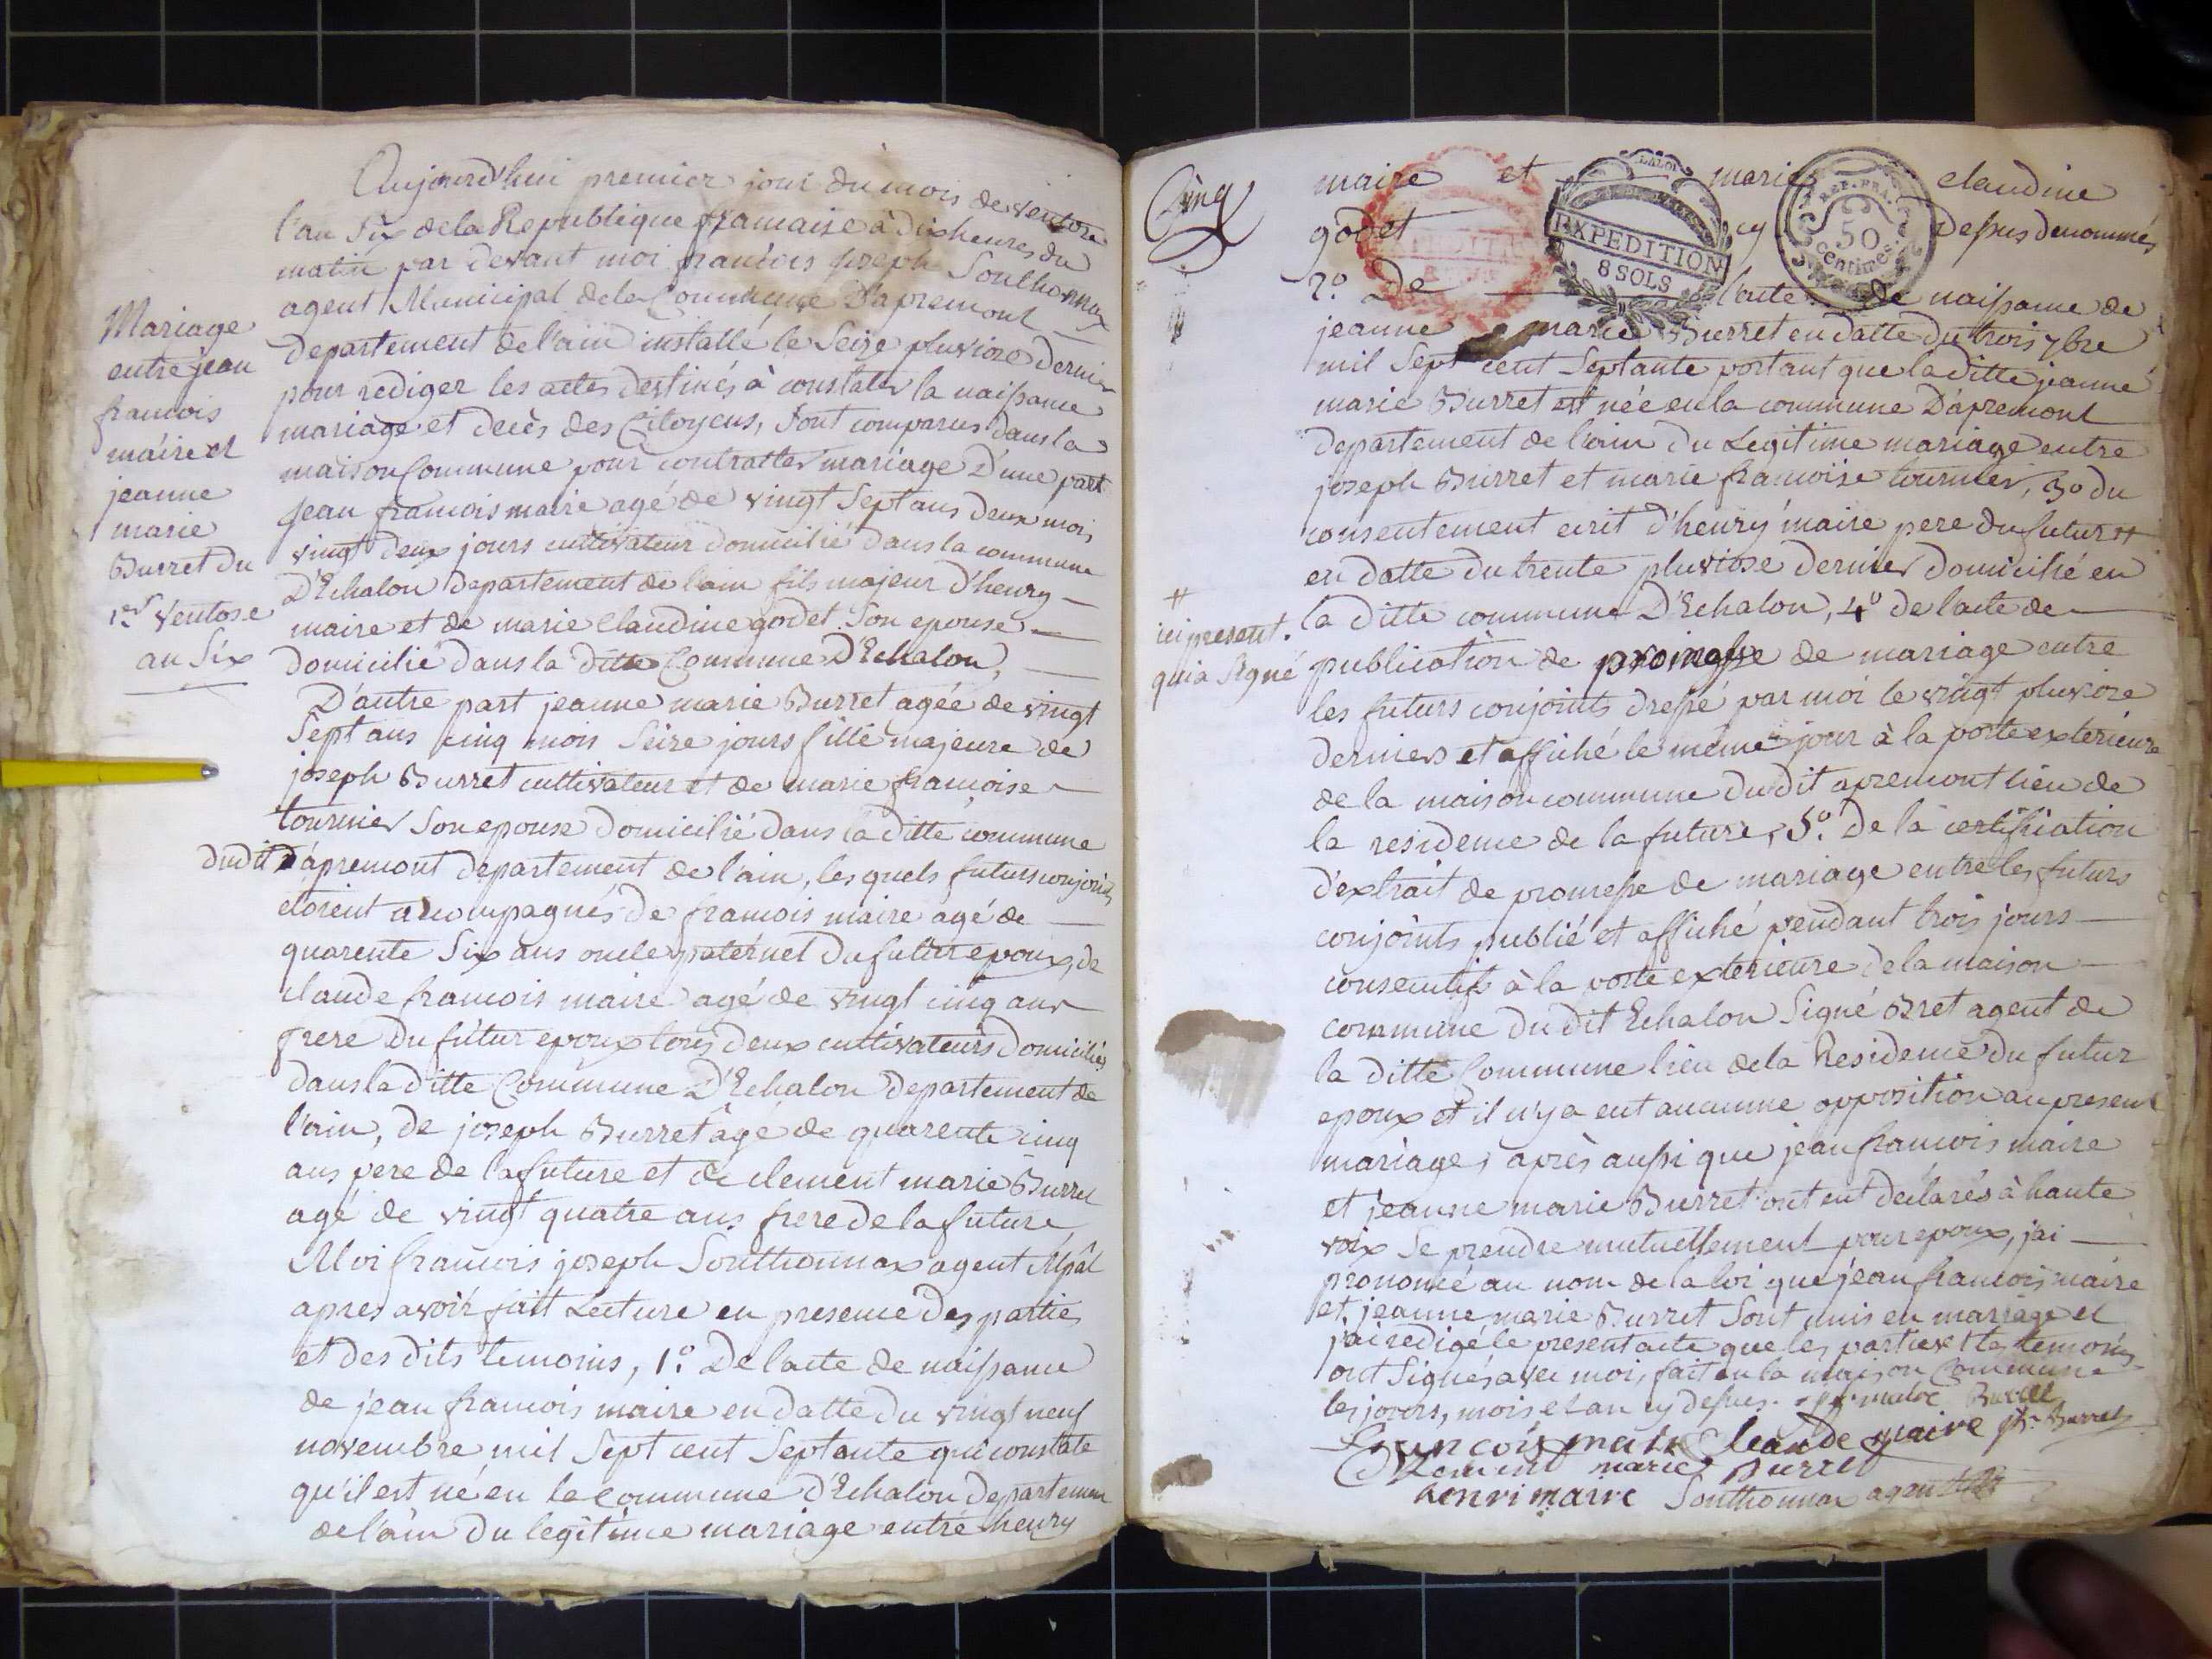 Mariage
entre jean
francois
maire et
jeanne
marie
Burret du
1er Ventose
an Six
Aujourd'hui premier jour du mois de ventose
l'an Six de la Republique francaise à dix heures du
matin par devant moi francois joseph Southonnax
agent Municipal de la Commune D'apremont
departement de l'ain installé le Seize pluviose dernier
pour rediger les actes destinés à constater la naissance
mariage et decès des Citoyens, sont comparus dans la
maison Commune pour contracter mariage D'une part
Jean francois maire agé de vingt Sept ans deux mois
vingt deux jours cultivateur domicilié dans la commune
D'Echalon departement de l'ain fils majeur d'henry
maire et de marie Claudine godet Son epouse
domicilié dans la ditte Commune D'Echalon,
D'autre part jeanne marie Burret agée de vingt
Sept ans cinq mois Seize jours fille majeure de
joseph Burret cultivateur et de marie francoise
tournier Son epouse domicilié dans la ditte commune
dudit D'apremont departement de l'ain, les quels futurs conjoints
etoient acompagnés de francois maire agé de
quarente Six ans oncle paternel du futur epoux, de
claude francois maire agé de vingt cinq ans
frere du futur epoux tous deux cultivateurs domiciliés
dans la ditte Commune D'Echalon departement de
l'ain, de joseph Burret agé de quarente cinq
ans pere de la future et de clement marie Burret
agé de vingt quatre ans frere de la future
Moi francois joseph Southonnax agent Mpâl
apres avoir fait Lecture en presence des partie
et des dits temoins, 1º De l'acte de naissance
de jean francois maire en datte du vingt neuf
novembre mil Sept cent Septante qui constate
qu'il est né en la commune d'Echalon departement
de l'ain du legitime mariage entre henry
Cinq
maire et marie claudine
godet cy Dessus denommés
EXPEDITION
8 SOLS
LA LOI
REP. FRA.
50
Centimes
2º De l'acte de naissance de
jeanne marie Burret en datte du trois 7bre
mil Sept cent Septante portant que la ditte jeanne
marie Burret est née en la commune D'apremont
departement de l'ain du Legitime mariage entre
joseph Burret et marie francoise tournier, 3º du
consentement ecrit d'henry maire pere du futur #
en datte du trente pluviose dernier domicilié en
la ditte commune D'Echalon, 4º de l'acte de
#
ici present.
qui a Signé
publication de promesse de mariage entre
les futurs conjoints dressé par moi le vingt pluviose
derniers et affiché le même jour à la porte exterieure
de la maison commune dudit apremont lieu de
la residence de la future, 5º. De la certification
d'extrait de promesse de mariage entre les futurs
conjoints publié et affiché pendant trois jours
consecutifs à la porte exterieure de la maison
commune du dit Echalon Signé Bret agent de
la ditte Commune lieu de la Residence du futur
epoux et il n'y a eut aucunne opposition au present
mariage, après aussi que jean francois maire
et jeanne marie Burret ont eut declarés à haute
voix Se prendre mutuellement pour epoux, j'ai
prononcé au nom de la loi que jean francois maire
et jeanne marie Burret Sont unis en mariage et
j'ai redigé le present acte que les parties et les temoins
ont Signés avec moi, fait en la maison Commune
les jours, mois et an cy dessus. maire Burret
francois maire Claude maire Burret
Clement marie Burret
henri maire Southonnax agent